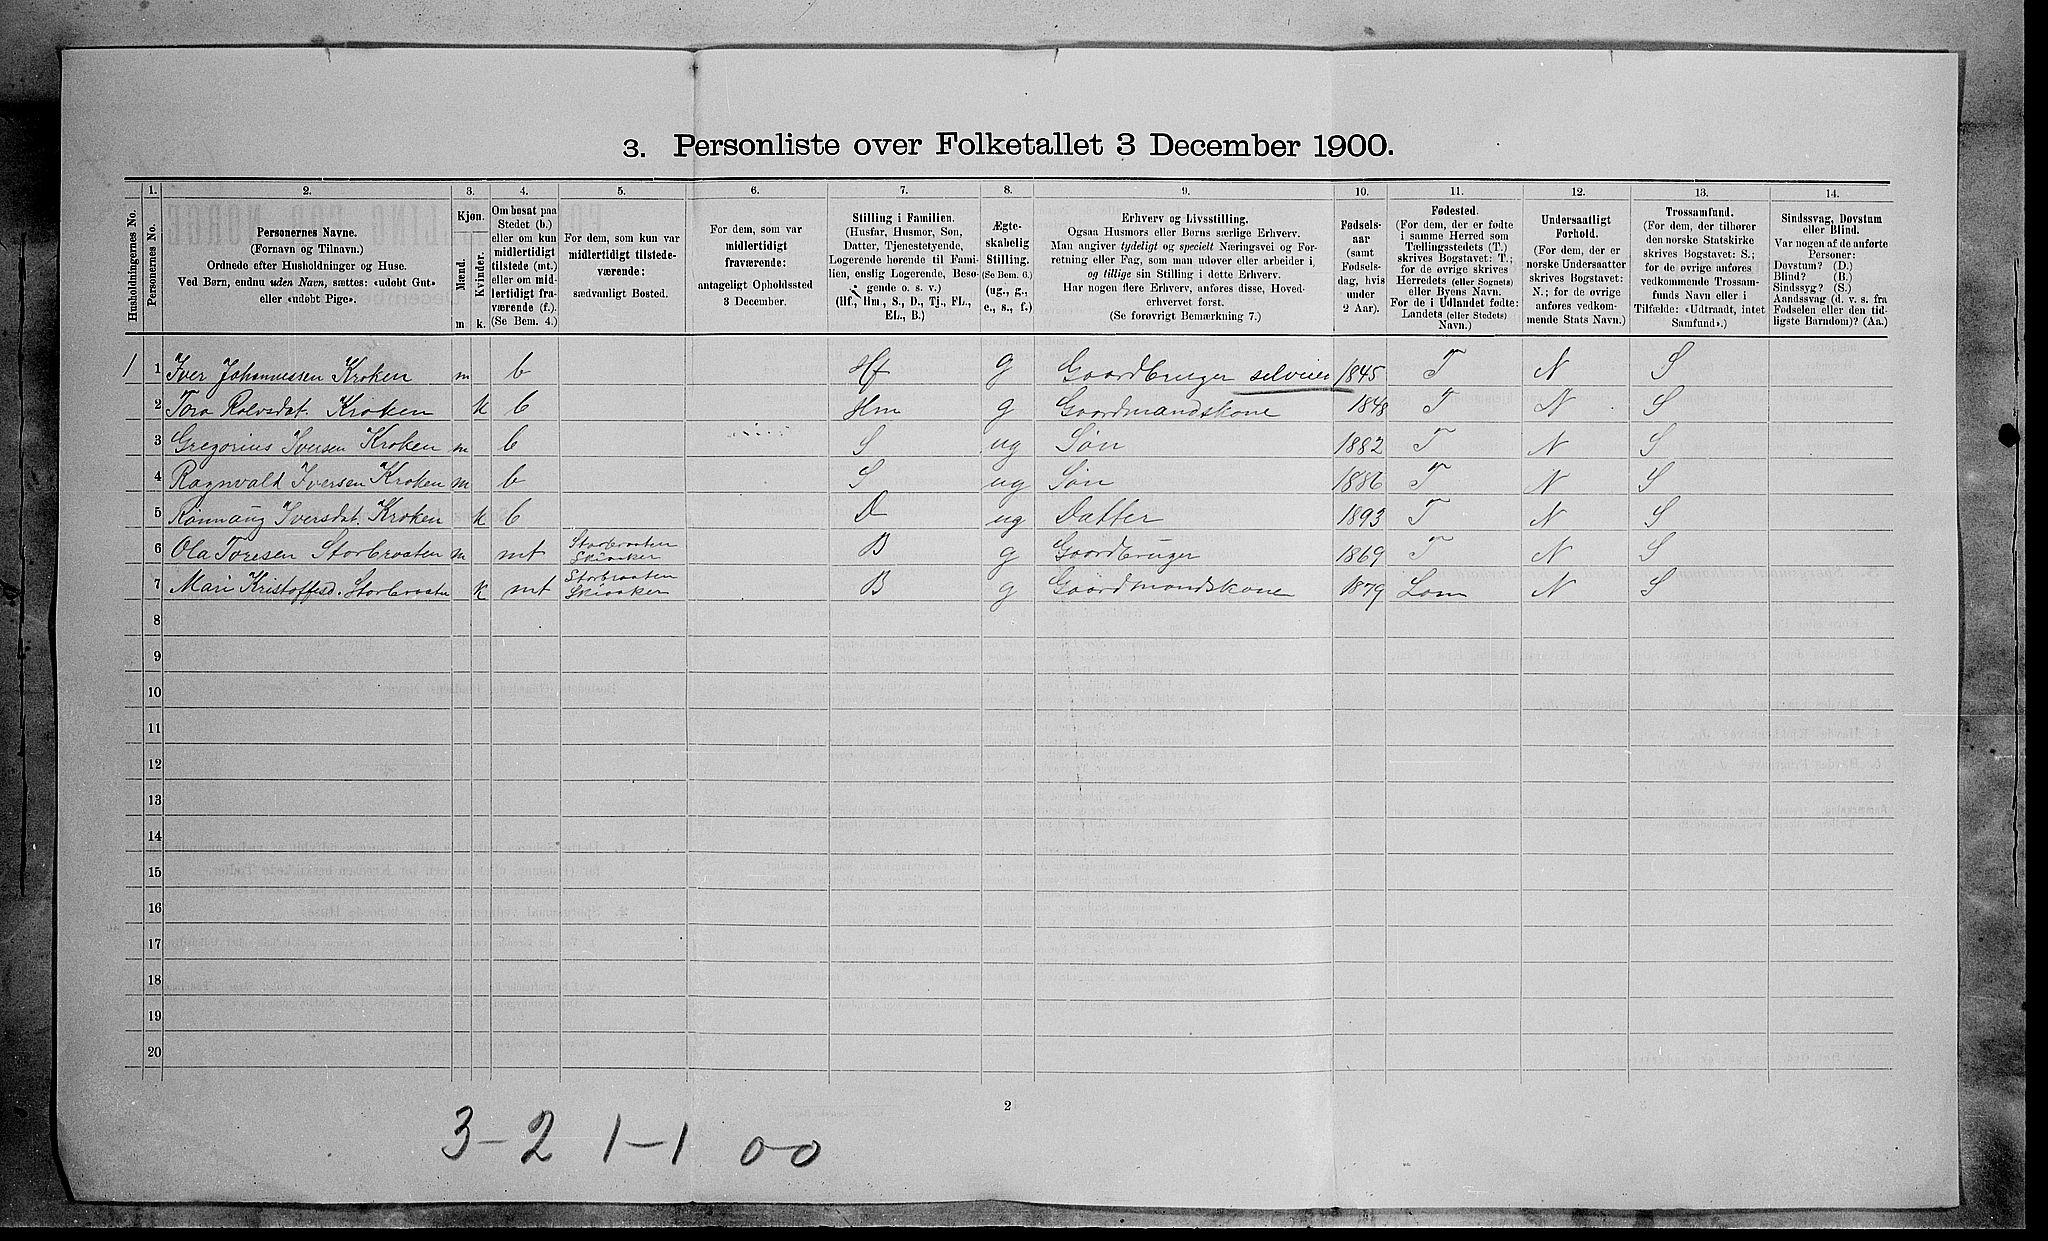 3. Personliste over Folketallet 3 December 1900.
1. 2. 3. 4. 5. 6. 7. 8. 9. 10. 11. 12. 13. 14.
Husholdningernes No.
Personernes No.
Personernes Navne.
(Fornavn og Tilnavn.)
Ordnede efter Husholdninger og Huse.
Ved Børn, endnu uden Navn, sættes: «udøbt Gut»
eller «udøbt Pige».
Kjøn.
Mænd.
Kvinder.
m k.
Om bosat paa
Stedet (b.)
eller om kun
midlertidigt
tilstede (mt.)
eller om mid-
lertidigt fra-
værende (f.).
(Se Bem. 4.)
For dem, som kun var
midlertidigt tilstede-
værende:
sædvanligt Bosted.
For dem, som var
midlertidigt
fraværende:
antageligt Opholdssted
3 December.
Stilling i Familien.
(Husfar, Husmor, Søn,
Datter, Tjenestetyende,
Logerende hørende til Fami-
lien, enslig Logerende, Besø-
gende o. s. v.)
(Hf., Hm., S., D., Tj., FL.,
EL., B.)
Ægte-
skabelig
Stilling.
(Se Bem. 6.)
(ug., g.,
e., s., f.)
Erhverv og Livsstilling.
Ogsaa Husmors eller Børns særlige Erhverv.
Man angiver tydeligt og specielt Næringsvei og For-
retning eller Fag, som man udøver eller arbeider i,
og tillige sin Stilling i dette Erhverv.
Har nogen flere Erhverv, anføres disse, Hoved-
erhvervet først.
(Se forøvrigt Bemærkning 7.)
Fødsels-
aar
(samt
Fødsels-
dag, hvis
under
2 Aar).
Fødested.
(For dem, der er fødte
i samme Herred som
Tællingsstedets (T.)
skrives Bogstavet: T.;
for de øvrige skrives
Herredets (eller Sognets)
eller Byens Navn.
For de i Udlandet fødte:
Landets (eller Stedets)
Navn.)
Undersaatligt
Forhold.
(For dem, der er
norske Undersaatter
skrives Bogstavet:
N.; for de øvrige
anføres vedkom-
mende Stats Navn.)
Trossamfund.
(For dem, der tilhører
den norske Statskirke
skrives Bogstavet: S.;
for de øvrige anføres
vedkommende Trossam-
funds Navn eller i
Tilfælde: «Udtraadt, intet
Samfund».)
Sindssvag, Døvstum
eller Blind.
Var nogen af de anførte
Personer:
Døvstum? (D.)
Blind? (B.)
Sindssyg? (S.)
Aandssvag (d. v. s. fra
Fødselen eller den tid-
ligste Barndom)? (Aa.)
1 1 Iver Johannessen Kroken m b Hf g Gaardbruger selveier 1845 T N S
2 Tora Rolvsdat. Kroken k b Hm g Gaardmandskone 1848 T N S
3 Gregorius Iversen Kroken m b S ug Søn 1882 T N S
4 Ragnvald Iversen Kroken m b S ug Søn 1886 T N S
5 Rønnaug Iversdat. Kroken k b D ug Datter 1893 T N S
6 Ola Toresen Storbraaten m mt Storbraaten Skiaaker B g Gaardbruger 1869 T N S
7 Mari Kristoffesd. Storbraaten k mt Storbraaten Skiaaker B g Gaardmandskone 1879 Lom N S
8
9
10
11
12
13
14
15
16
17
18
19
20
2
3-2 1-1 0-0